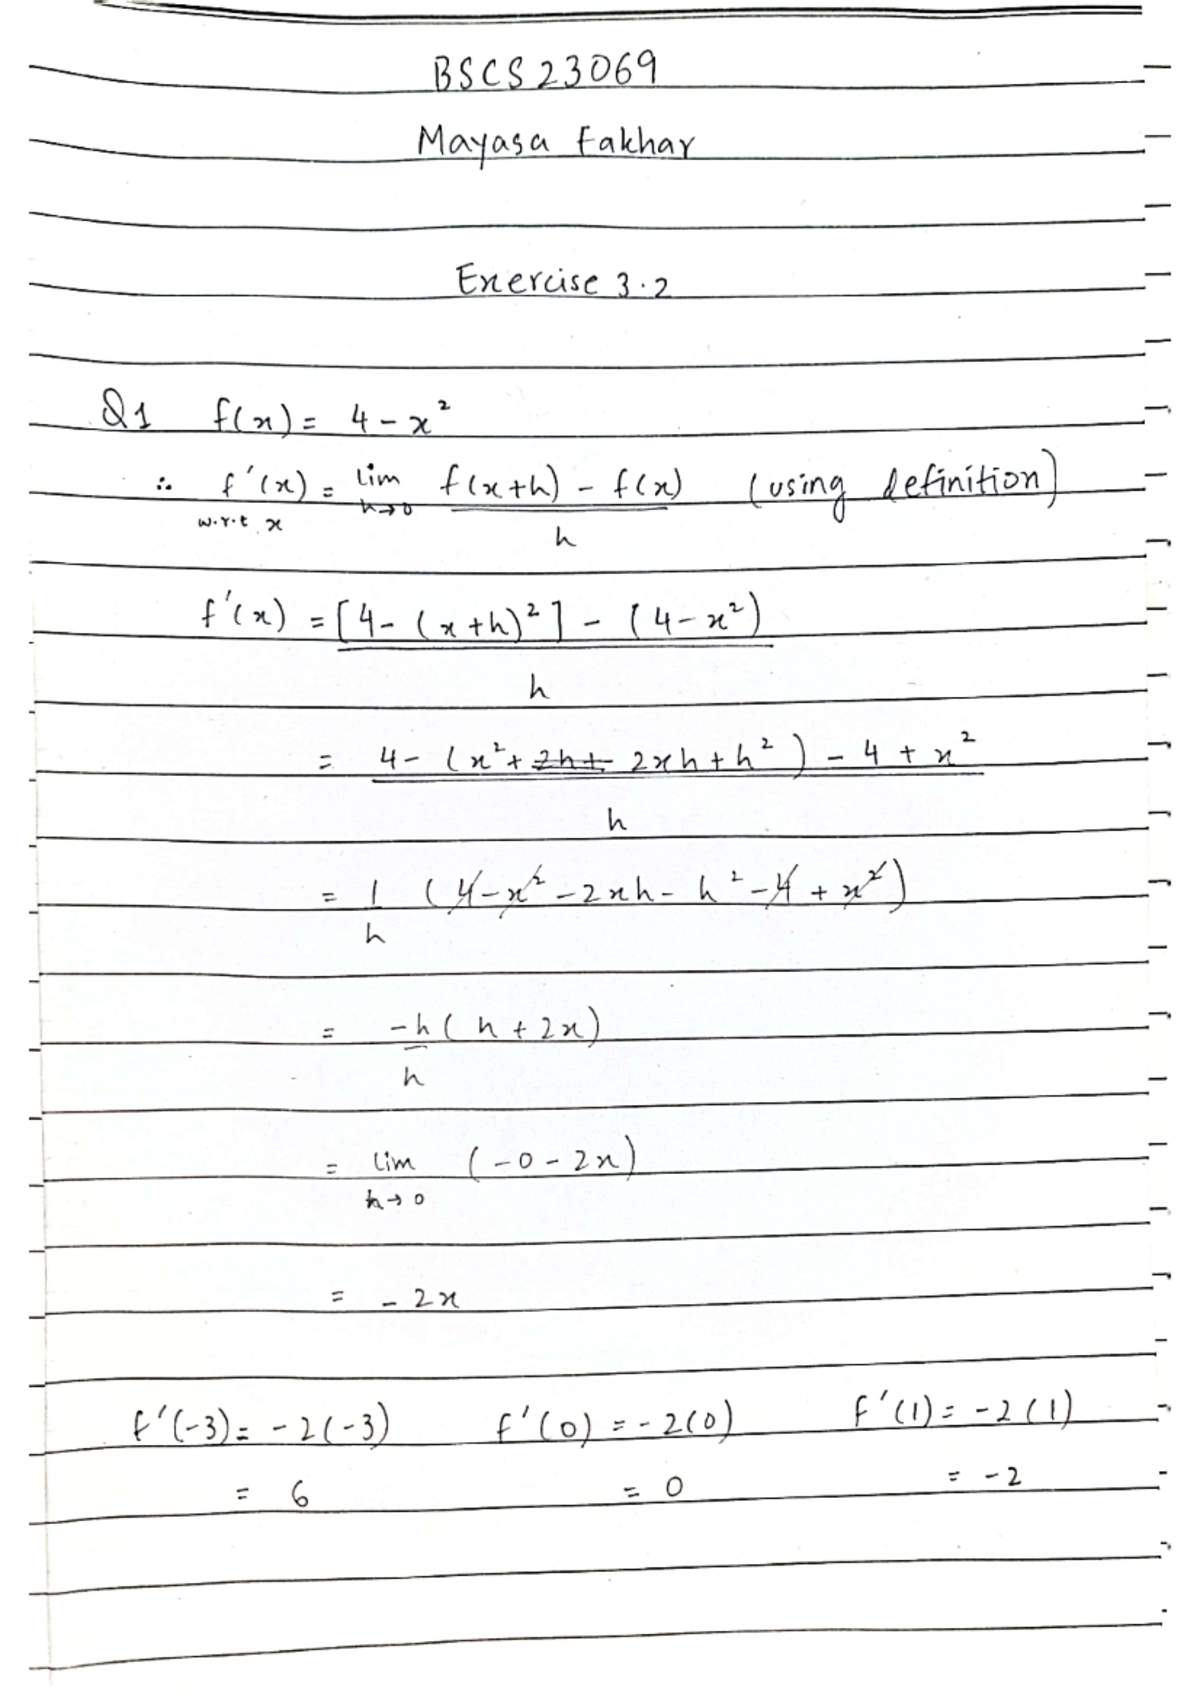 BSCS23069
Mayasa Fakhar
Exercise 3.2
Q1 f(x) = 4 - x²
∴ f'(x) = lim f(x+h) - f(x) (using definition)
w.r.t x h→0 h
f'(x) = [4 - (x+h)²] - (4 - x²)
h
= 4 - (x² + 2h + 2xh + h²) - 4 + x²
h
= 1 (4 - x² - 2xh - h² - 4 + x²)
h
= -h (h + 2x)
h
= lim (-0 - 2x)
h→0
= -2x
f'(-3) = -2(-3) f'(0) = -2(0) f'(1) = -2(1)
= 6 = 0 = -2